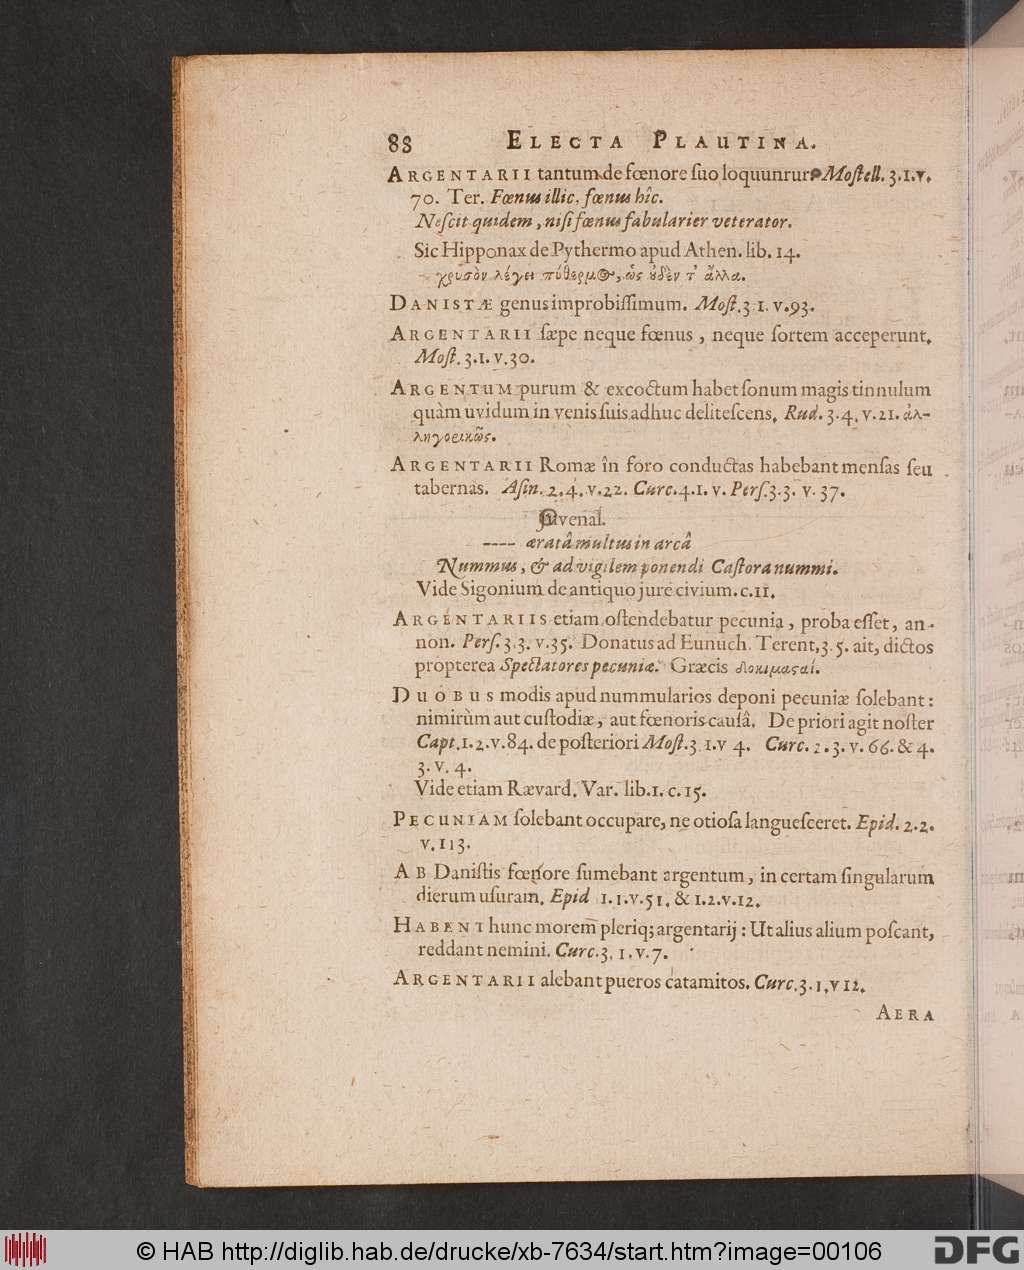 88 ELECTA PLAUTINA.
ARGENTARII tantum de fœnore ſuo loquunrur. Moſtell. 3.1.v.
70. Ter. Fœnus illic, fœnus hîc.
Neſcit quidem, niſi fœnus fabularier veterator.
Sic Hipponax de Pythermo apud Athen. lib. 14.
χρυσὸν λέγει πύθερμος, ὡς οὐδὲν τ' ἄλλα.
DANISTÆ genus improbiſſimum. Moſt. 3.1. v.93.
ARGENTARII ſæpe neque fœnus, neque ſortem acceperunt,
Moſt. 3.1. v.30.
ARGENTUM purum & excoctum habet ſonum magis tinnulum
quàm uvidum in venis ſuis adhuc deliteſcens, Rud. 3.4. v.21. ἀλ-
ληγορικῶς.
ARGENTARII Romæ în foro conductas habebant menſas ſeu
tabernas. Aſin. 2.4. v.22. Curc. 4.1. v. Perſ. 3.3. v. 37.
Juvenal.
---- æratâ multus in arcâ
Nummus, & ad vigilem ponendi Caſtora nummi.
Vide Sigonium de antiquo jure civium. c.11.
ARGENTARIIS etiam oſtendebatur pecunia, proba eſſet, an-
non. Perſ. 3.3. v.35. Donatus ad Eunuch. Terent. 3.5. ait, dictos
propterea Spectatores pecuniæ. Græcis δοκιμαςαί.
DUOBUS modis apud nummularios deponi pecuniæ ſolebant:
nimirùm aut cuſtodiæ, aut fœnoris cauſâ. De priori agit noſter
Capt. 1.2. v.84. de poſteriori Moſt. 3.1. v 4. Curc. 2.3. v. 66. & 4.
3. v. 4.
Vide etiam Rævard. Var. lib.1. c.15.
PECUNIAM ſolebant occupare, ne otioſa langueſceret. Epid. 2.2.
v.113.
AB Daniſtis fœnore ſumebant argentum, in certam ſingularum
dierum uſuram. Epid 1.1. v.51. & 1.2. v.12.
HABENT hunc morem pleriq; argentarij: Ut alius alium poſcant,
reddant nemini. Curc. 3. 1. v. 7.
ARGENTARII alebant pueros catamitos. Curc. 3.1. v 12.
AERA
© HAB http://diglib.hab.de/drucke/xb-7634/start.htm?image=00106
DFG